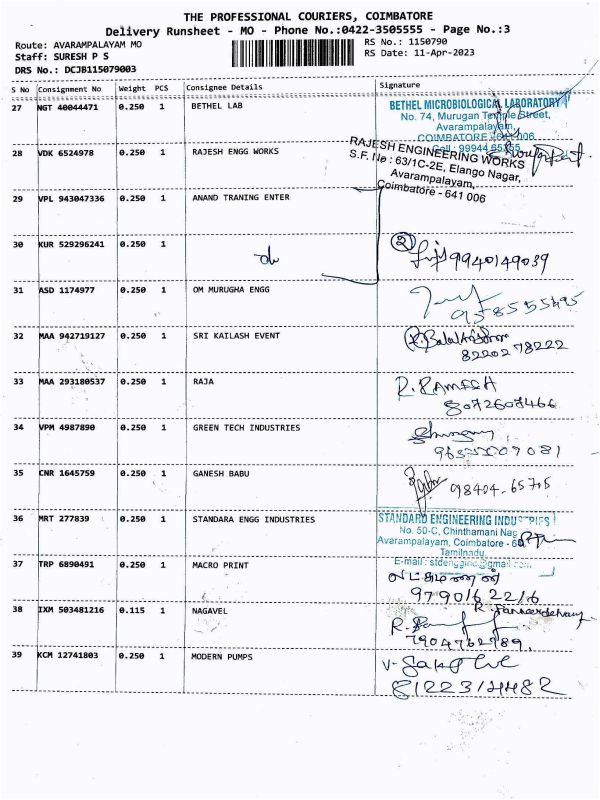 THE PROFESSIONAL COURIERS, COIMBATORE
Delivery Runsheet - MO - Phone No.:0422-3505555 - Page No.:3
Route: AVARAMPALAYAM MO
RS No.: 1150790
Staff: SURESH P S
RS Date: 11-Apr-2023
DRS No.: DCJB115079003
S No Consignment No Weight PCS Consignee Details Signature
27 NGT 40044471 0.250 1 BETHEL LAB
BETHEL MICROBIOLOGICAL LABORATORY
No. 74, Murugan Temple Street,
Avarampalayam,
COIMBATORE
28 VDK 6524978 0.250 1 RAJESH ENGG WORKS
RAJESH ENGINEERING WORKS
S.F. No : 63/1C-2E, Elango Nagar,
Avarampalayam,
Coimbatore - 641 006
29 VPL 943047336 0.250 1 ANAND TRANING ENTER
30 KUR 529296241 0.250 1
do
2 9940149039
31 ASD 1174977 0.250 1 OM MURUGHA ENGG
32 MAA 942719127 0.250 1 SRI KAILASH EVENT
8220278222
33 MAA 293180537 0.250 1 RAJA
R. RAMESH
8072607466
34 VPM 4987890 0.250 1 GREEN TECH INDUSTRIES
35 CNR 1645759 0.250 1 GANESH BABU
98404-65705
36 MRT 277839 0.250 1 STANDARA ENGG INDUSTRIES
STANDARD ENGINEERING INDUSTRIES
No. 50-C, Chinthamani Nag
Avarampalayam, Coimbatore - 6
Tamilnadu
E-mail : stdenggind@gmail.com
37 TRP 6890491 0.250 1 MACRO PRINT
லட்சுமணன்
9790162216
38 IXM 503481216 0.115 1 NAGAVEL
7904762789
39 KCM 12741803 0.250 1 MODERN PUMPS
8122314482